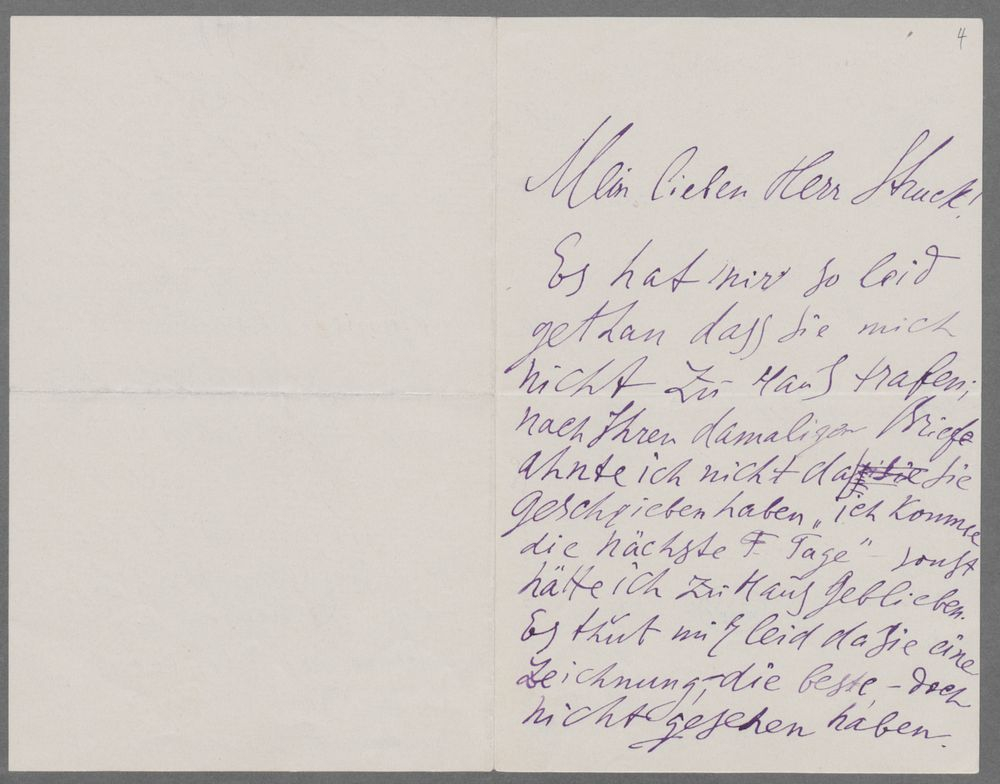 4
Mein lieben Herr Struck!
Es hat mir so leid
gethan dass Sie mich
nicht zu Haus trafen;
nach Ihren damaligen Briefe
ahnte ich nicht dass Sie
geschrieben haben „ich komme
die nächste T Tage" – sonst
hätte ich zu Haus geblieben.
Es thut mir leid da Sie eine
Zeichnung, – die beste, – doch
nicht gesehen haben.